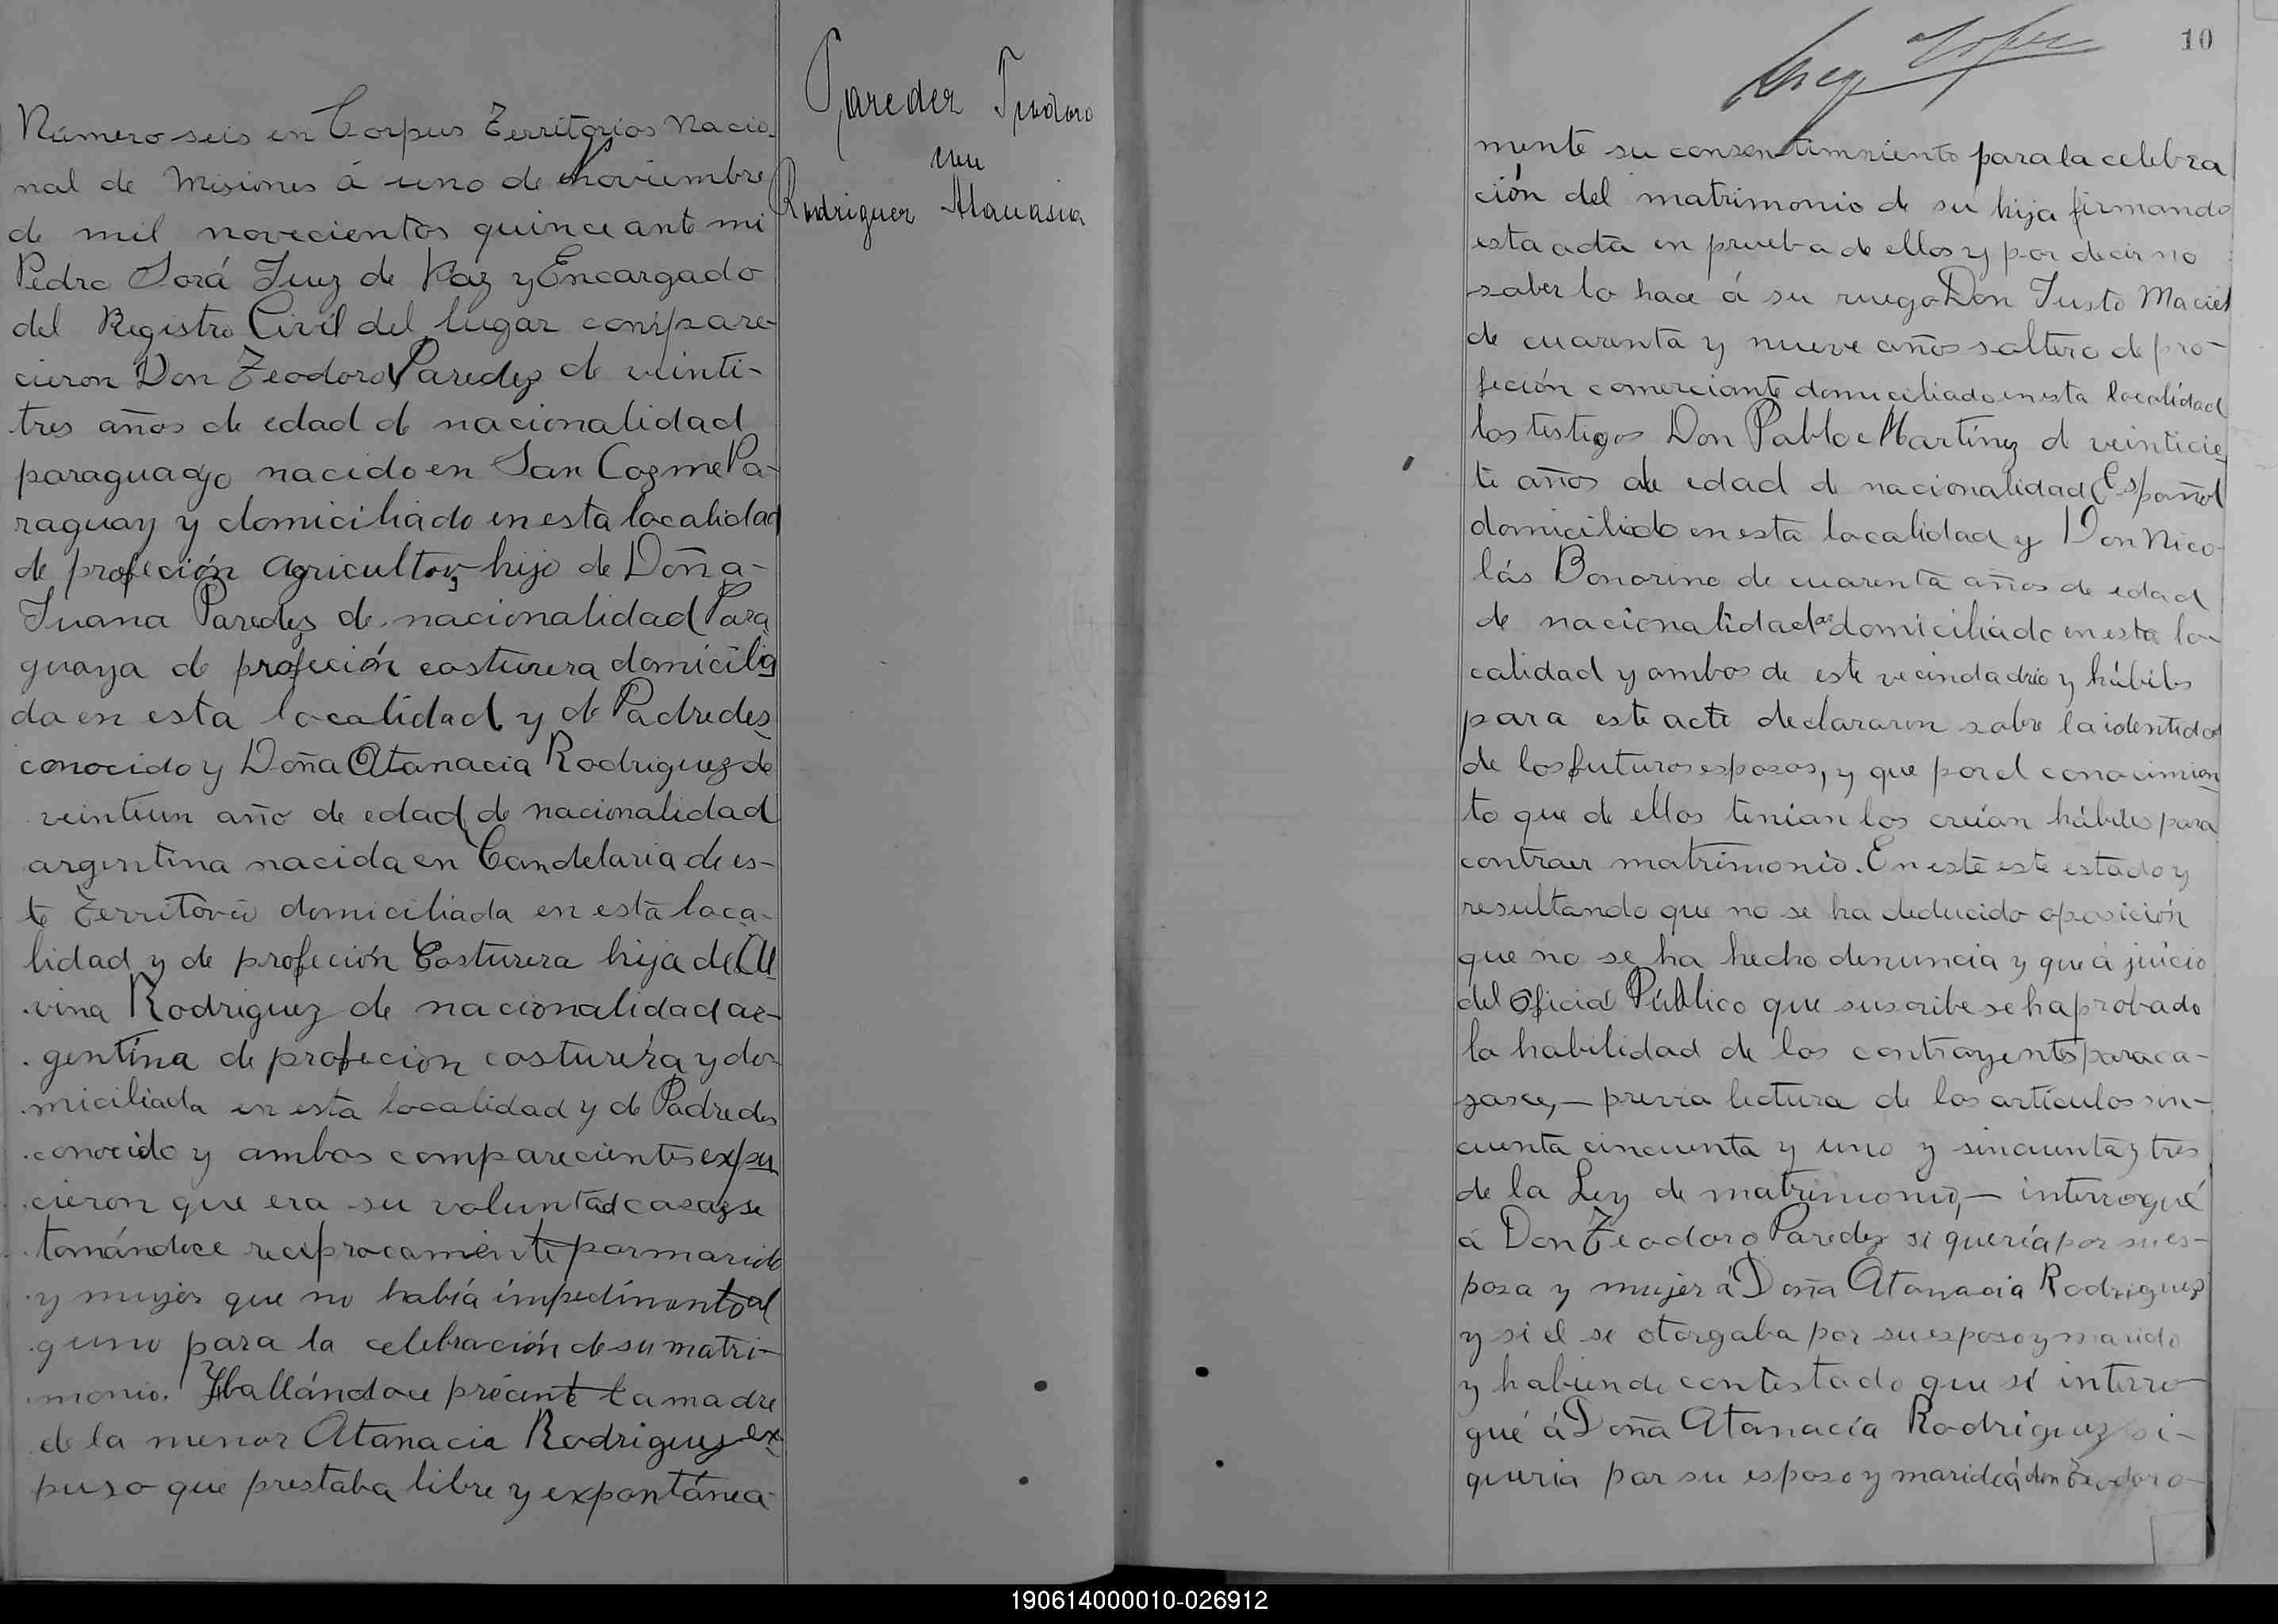 Número seis en Corpus Territorios Nacio-
nal de Misiones á uno de Noviembre
de mil novecientos quince ante mi
Pedro Sorá Juez de Paz y Encargado
del Registro Civil del lugar compare-
cieron Don Teodoro Paredez de veinti-
tres años de edad de nacionalidad
paraguayo nacido en San Cozme Pa-
raguay y domiciliado en esta localidad
de profeción agricultor, hijo de Doña-
Juana Paredez de nacionalidad Para
guaya de profeción costurera domicilia
da en esta localidad y de Padre des
conocido y Doña Atanacia Rodriguez de
veintiun año de edad de nacionalidad
argentina nacida en Candelaria de es-
te Territorio domiciliada en esta loca-
lidad y de profeción Costurera hija de Al
vina Rodriguez de nacionalidad ar-
gentina de profecion costurera y do-
miciliada en esta localidad y de Padre des
conocido y ambos comparecientes expu
cieron que era su voluntad casarse
tomándoce reciprocamente por marido
y mujer que no había impedimento al
guno para la celebración de su matri-
monio. Hallándoce précente la madre
de la menor Atanacia Rodriguez ex
puso que prestaba libre y expontánea-
Paredez Teodoro
con
Rodriguez Atanasia
10
mente su consentimiento para la celebra
ción del matrimonio de su hija firmando
esta acta en prueba de ellos y por decir no
saber lo hace á su ruego Don Justo Maciel
de cuarenta y nueve años soltero de pro-
feción comerciante domiciliado en esta localidad
los testigos Don Pablo Martínez de veinticie
te años de edad de nacionalidad Español
domiciliado en esta localidad y Don Nico-
lás Bonorino de cuarenta años de edad
de nacionalidad ar domiciliado en esta lo-
calidad y ambos de este vecindadrio y hábiles
para este acte declararon sobre la identidad
de los futuros esposos, y que por el conocimien
to que de ellos tenian los creían hábiles para
contraer matrimonio. En este este estado y
resultando que no se ha deducido oposición
que no se ha hecho denuncia y que á juicio
del Oficial Público que suscribe se ha probado
la habilidad de los contrayentes para ca-
sarce, — previa lectura de los artículos sin-
cuenta cincuenta y uno y sincuenta y tres
de la Ley de matrimonio, — interrogué
á Don Teodoro Paredez si quería por su es-
posa y mujer á Doña Atanacia Rodriguez
y si el se otorgaba por su esposo y marido
y habiendo contestado que sí interro-
gué á Doña Atanacía Rodriguez si-
queria por su esposo y marido á don Teodoro-
190614000010-026912